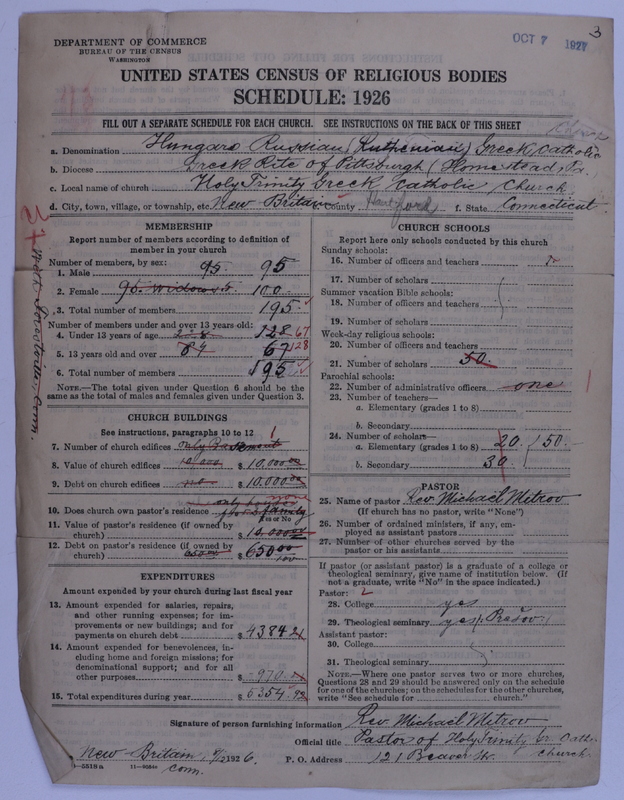 3
OCT 7 1927
DEPARTMENT OF COMMERCE
BUREAU OF THE CENSUS
WASHINGTON
UNITED STATES CENSUS OF RELIGIOUS BODIES
SCHEDULE: 1926
FILL OUT A SEPARATE SCHEDULE FOR EACH CHURCH. SEE INSTRUCTIONS ON THE BACK OF THIS SHEET
a. Denomination Hungaro Russian (Ruthenian) Greek Catholic
b. Diocese Greek Rite of Pittsburgh (Homestead, Pa.
c. Local name of church Holy Trinity Greek Catholic Church
d. City, town, village, or township, etc. New Britain County Hartford f. State Connecticut
MEMBERSHIP
Report number of members according to definition of member in your church
Number of members, by sex:
1. Male 95. 95
2. Female 100
3. Total number of members 195
Number of members under and over 13 years old:
4. Under 13 years of age 128 67
5. 13 years old and over 67 128
6. Total number of members 195
NOTE.—The total given under Question 6 should be the
same as the total of males and females given under Question 3.
CHURCH BUILDINGS
See instructions, paragraphs 10 to 12
7. Number of church edifices only Basement 1
8. Value of church edifices 10,000 $ 10,000 00
9. Debt on church edifices no $ 10.000 00
10. Does church own pastor's residence none
Yes or No
11. Value of pastor's residence (if owned by
church) $ 10.000 00
12. Debt on pastor's residence (if owned by
church) $ 650 00
EXPENDITURES
Amount expended by your church during last fiscal year
13. Amount expended for salaries, repairs,
and other running expenses; for im-
provements or new buildings; and for
payments on church debt $ 4384
14. Amount expended for benevolences, in-
cluding home and foreign missions; for
denominational support; and for all
other purposes $ 970
15. Total expenditures during year $ 6354
CHURCH SCHOOLS
Report here only schools conducted by this church
Sunday schools:
16. Number of officers and teachers
17. Number of scholars
Summer vacation Bible schools:
18. Number of officers and teachers
19. Number of scholars
Week-day religious schools:
20. Number of officers and teachers
21. Number of scholars 50.
Parochial schools:
22. Number of administrative officers one
23. Number of teachers—
a. Elementary (grades 1 to 8)
b. Secondary
24. Number of scholars—
a. Elementary (grades 1 to 8) 20. 50.
b. Secondary 30.
PASTOR
25. Name of pastor Rev. Michael Mitrov
(If church has no pastor, write "None")
26. Number of ordained ministers, if any, em-
ployed as assistant pastors
27. Number of other churches served by the
pastor or his assistants
If pastor (or assistant pastor) is a graduate of a college or
theological seminary, give name of institution below. (If
not a graduate, write "No" in the space indicated.)
Pastor: 2
28. College yes
29. Theological seminary yes, Prešov.
Assistant pastor:
30. College
31. Theological seminary
NOTE.—Where one pastor serves two or more churches,
Questions 28 and 29 should be answered only on the schedule
for one of the churches; on the schedules for the other churches,
write "See schedule for church."
Signature of person furnishing information Rev. Michael Mitrov
Official title Pastor of Holy Trinity Gr. Cath. church.
New Britain, Conn. 1926. P. O. Address 121 Beaver St.
11—9684